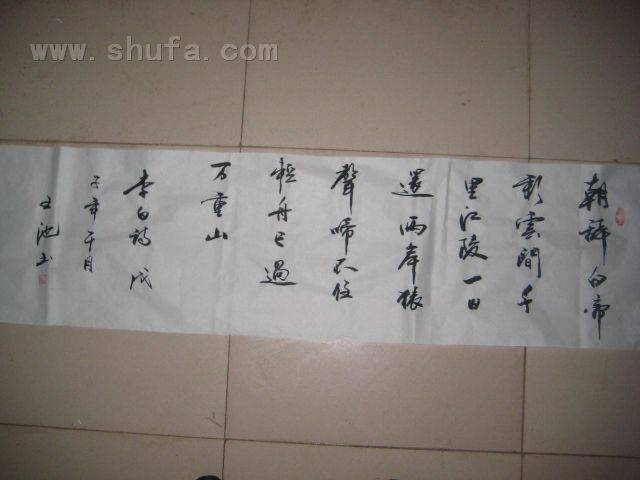 www.shufa.com
朝辭白啼
彩雲間千
里江陵一日
還兩岸猿
聲啼不住
輕舟已過
万重山
李白詩 戊
子年 月
池书